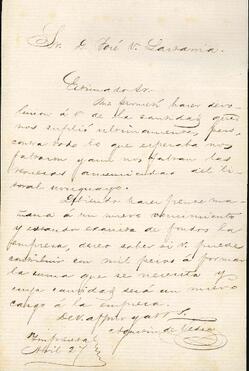 Sr. D. José V. Larravia.
Estimado Sr.
Me prometí hacer devo-
lucion á V. de la cantidad que
nos suplió ultimamente, pero,
contra todo lo que esperaba nos
faltaron y aun nos faltan las
remesas anunciadas del li-
toral uruguayo.
Debiendo hacer frente ma-
ñana á un nuevo vencimiento
y estando exausta de fondos la
empresa, deseo saber si V. puede
contribuir con mil pesos á formar
la suma que se necesita y
cuya cantidad será un nuevo
cargo á la empresa.
De V. affmo y att S.
Agustin de Vedia
Imprenta
Abril 27